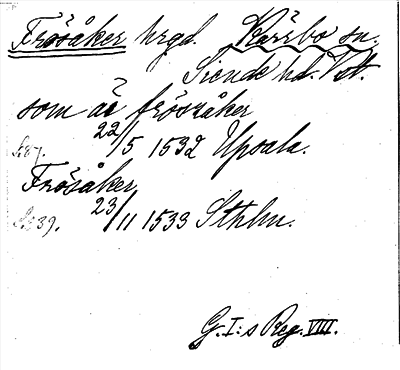 Frösåker hrgd. Kärrbo sn.
Siende hd. Vst.
som är fröszåker
22/5 1532 Upsala.
S. 87.
Frösåker
23/11 1533 Sthlm.
S. 39.
G. I:s Reg. VIII.